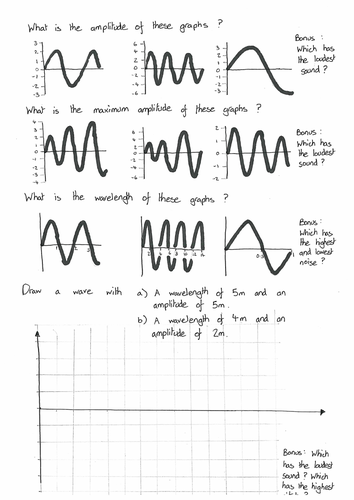 What is the amplitude of these graphs ?
3
2
1
0
-1
-2
-3
6
4
2
0
-2
-4
-6
3
2
1
0
-1
-2
-3
Bonus :
Which has
the loudest
sound ?
What is the maximum amplitude of these graphs ?
4
0
6
0
2
1
0
-1
-2
Bonus :
Which has
the loudest
sound ?
What is the wavelength of these graphs ?
1 2 3
2 4 6 8 10 12 14
0.5 1
Bonus:
Which has
the highest
and lowest
noise ?
Draw a wave with a) A wavelength of 5m and an
amplitude of 5m.
b) A wavelength of 4m and an
amplitude of 2m.
Bonus: Which
has the loudest
sound ? Which
has the highest